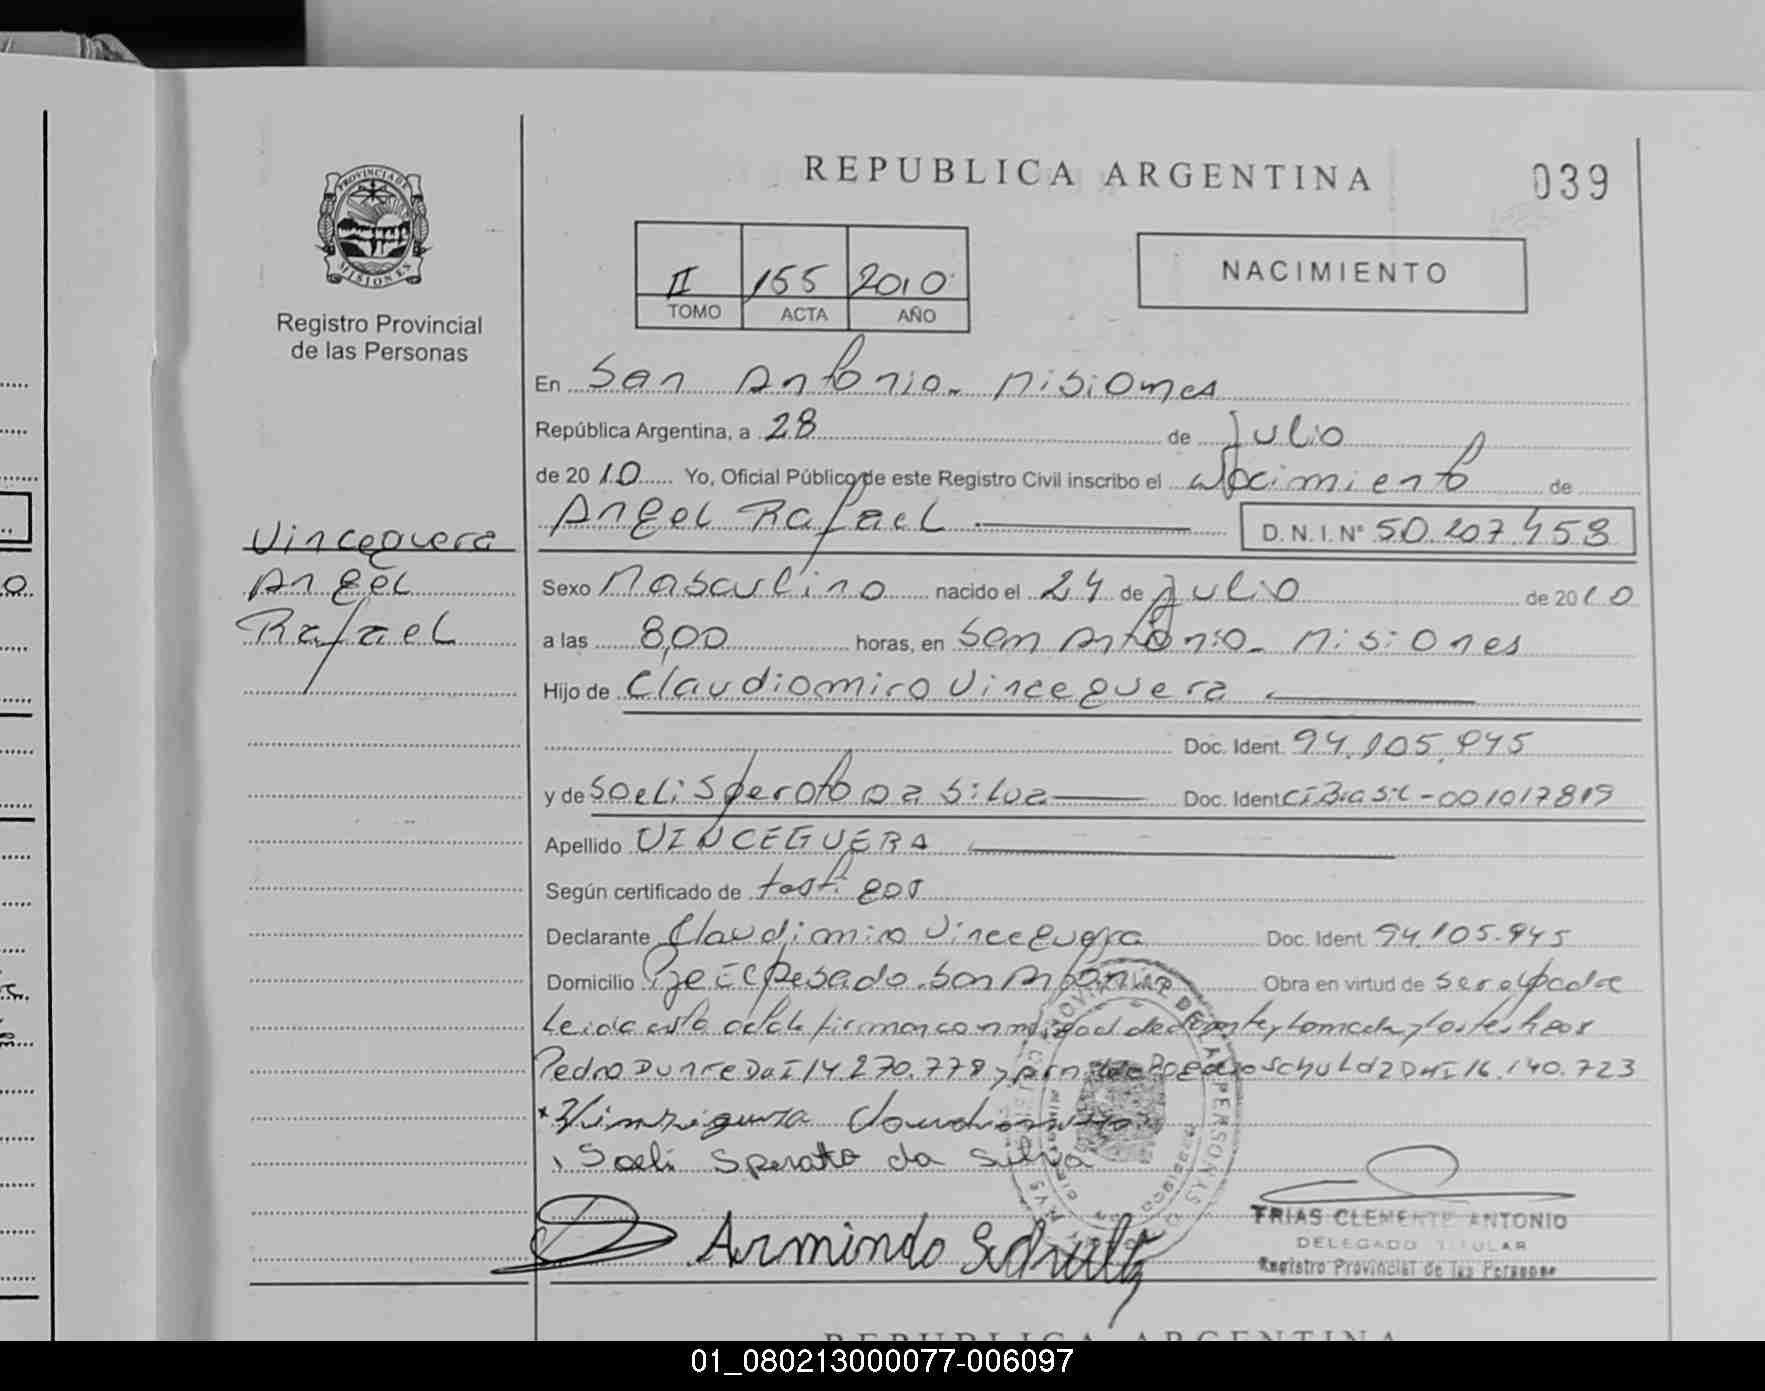 REPUBLICA ARGENTINA
039
PROVINCIA DE MISIONES
Registro Provincial
de las Personas
II 155 2010
TOMO ACTA AÑO
NACIMIENTO
En San Antonio - Misiones
República Argentina, a 28 de Julio
de 2010 Yo, Oficial Público de este Registro Civil inscribo el Nacimiento de
Angel Rafael D.N.I. N° 50.207.453
Vinceguera
Angel
Rafael
Sexo Masculino nacido el 24 de Julio de 2010
a las 8,00 horas, en San Antonio - Misiones
Hijo de Claudiomiro Vinceguera
Doc. Ident. 94.105.945
y de Soeli Speroto Da Silva Doc. Ident. CI Brasil - 001017819
Apellido VINCEGUERA
Según certificado de testigos
Declarante Claudiomiro Vinceguera Doc. Ident. 94.105.945
Domicilio Pje El Pesado. San Antonio Obra en virtud de ser el padre
Leida esta acta la firman conmigo el declarante, la madre y los testigos
Pedro Duarte DNI 14.270.778 y Schuldz DNI 16.140.723
Soeli Sperotto da Silva
Armindo Schultz
TRIAS CLEMENTE ANTONIO
DELEGADO TITULAR
Registro Provincial de las Personas
REPUBLICA ARGENTINA
01_080213000077-006097